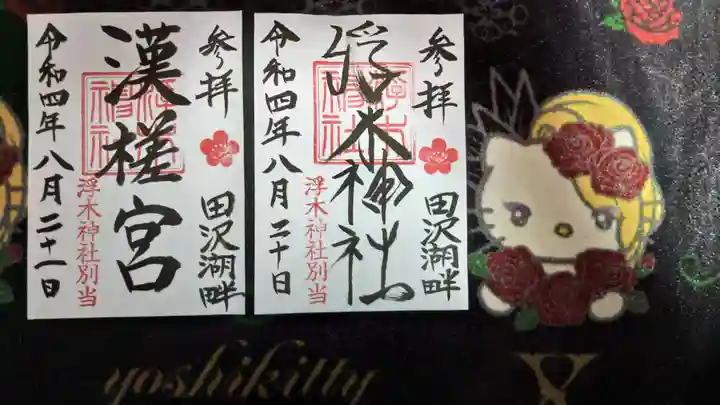 参拝
田沢湖畔
浮木神社
浮木神社別当
令和四年八月二十日
参拝
田沢湖畔
漢槎宮
浮木神社別当
令和四年八月二十一日
yoshikitty
X